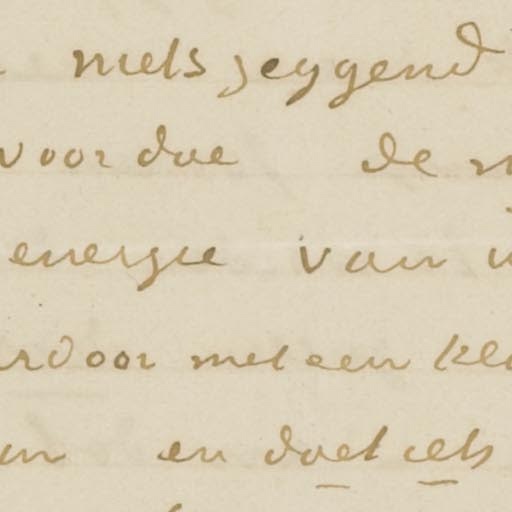 niets zeggend
voor die de
energie van
rdoor met een kle
en doet iets